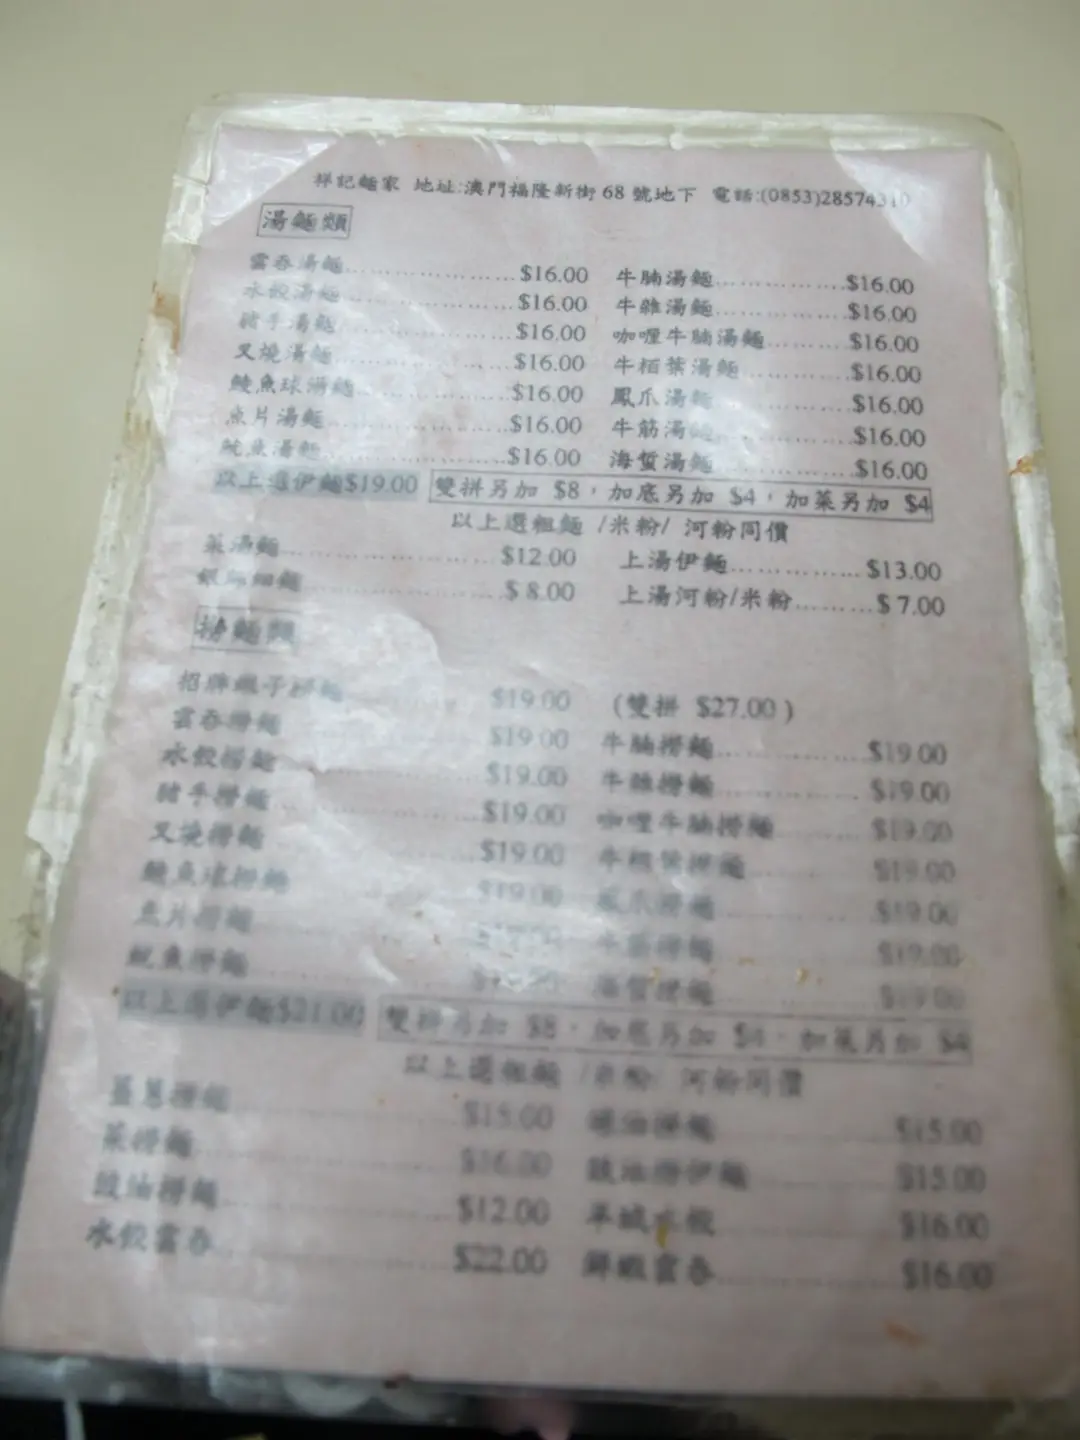 祥記麵家 地址:澳門福隆新街 68 號地下 電話:(0853)28574310
湯麵類
雲吞湯麵 $16.00 牛腩湯麵 $16.00
水餃湯麵 $16.00 牛雜湯麵 $16.00
豬手湯麵 $16.00 咖喱牛腩湯麵 $16.00
叉燒湯麵 $16.00 牛栢葉湯麵 $16.00
鯪魚球湯麵 $16.00 鳳爪湯麵 $16.00
魚片湯麵 $16.00 牛筋湯麵 $16.00
魷魚湯麵 $16.00 海蜇湯麵 $16.00
以上選伊麵$19.00 雙拼另加 $8，加底另加 $4，加菜另加 $4
以上選粗麵 /米粉/ 河粉同價
菜湯麵 $12.00 上湯伊麵 $13.00
細麵 $ 8.00 上湯河粉/米粉 $ 7.00
撈麵類
招牌蝦子撈麵 $19.00 (雙拼 $27.00 )
雲吞撈麵 $19.00 牛腩撈麵 $19.00
水餃撈麵 $19.00 牛雜撈麵 $19.00
豬手撈麵 $19.00 咖喱牛腩撈麵 $19.00
叉燒撈麵 $19.00 牛栢葉撈麵 $19.00
鯪魚球撈麵 $19.00 鳳爪撈麵 $19.00
魚片撈麵 牛筋撈麵 $19.00
魷魚撈麵 海蜇撈麵 $19.00
以上選伊麵$21.00 雙拼另加 $8，加底另加 $4，加菜另加 $4
以上選粗麵 /米粉/ 河粉同價
薑葱撈麵 $15.00 撈麵 $15.00
菜撈麵 $16.00 豉油撈伊麵 $15.00
豉油撈麵 $12.00 水餃 $16.00
水餃雲吞 $22.00 鮮蝦雲吞 $16.00